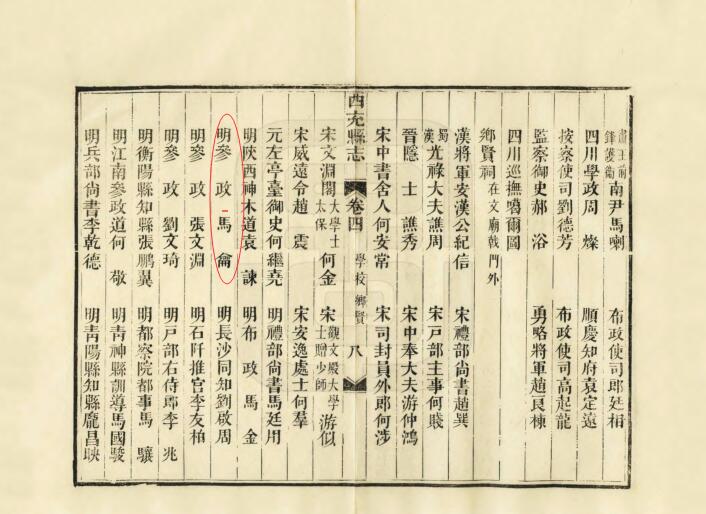 王前鋒護衛南尹馬喇 布政使司郎廷相
四川學政周燦 順慶知府袁定遠
按察使司劉德芳 布政使司高起龍
監察御史郝浴 勇略將軍趙良棟
四川巡撫噶爾圖
鄉賢祠在文廟戟門外
漢將軍安漢公紀信 宋禮部尚書趙巽
蜀漢光祿大夫譙周 宋戶部主事何賤
晉隱士譙秀 宋中奉大夫游仲鴻
宋中書舍人何安常 宋司封員外郎何涉
西充縣志 卷四 學校 鄉賢 八
宋文淵閣大學士太保何金 宋觀文殿大學士贈少師游似
宋威遠令趙震 宋安逸處士何羣
元左亭臺御史何繼堯 明禮部尚書馬廷用
明陝西神木道袁諫 明布政馬金
明參政馬龠 明長沙同知劉啟周
明參政張文淵 明石阡推官李友柏
明參政劉文琦 明戶部右侍郎李兆
明衡陽縣知縣張鵬翼 明都察院都事馬驤
明江南參政道何敬 明青神縣訓導馬國駿
明兵部尚書李乾德 明青陽縣知縣龐昌映